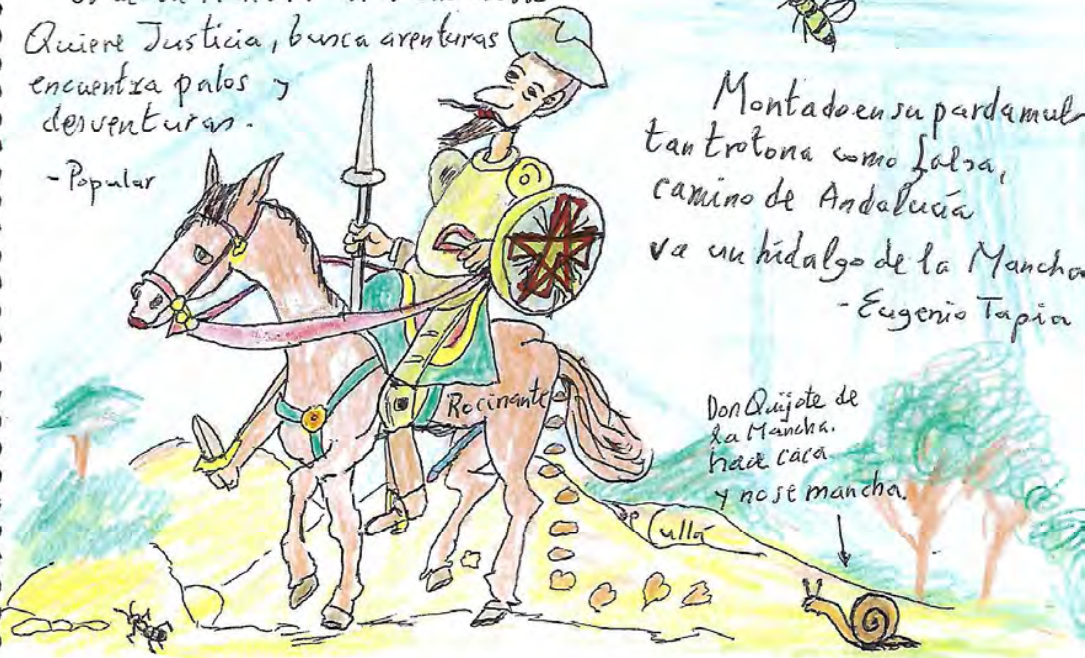 Quiere Justicia, busca aventuras
encuentra palos y
desventuras.
-Popular
Montado en su parda mula
tan trotona como falsa,
camino de Andalucía
va un hidalgo de la Mancha
-Eugenio Tapia
Rocinante
Don Quijote de
la Mancha.
hace caca
y no se mancha.
Cullá